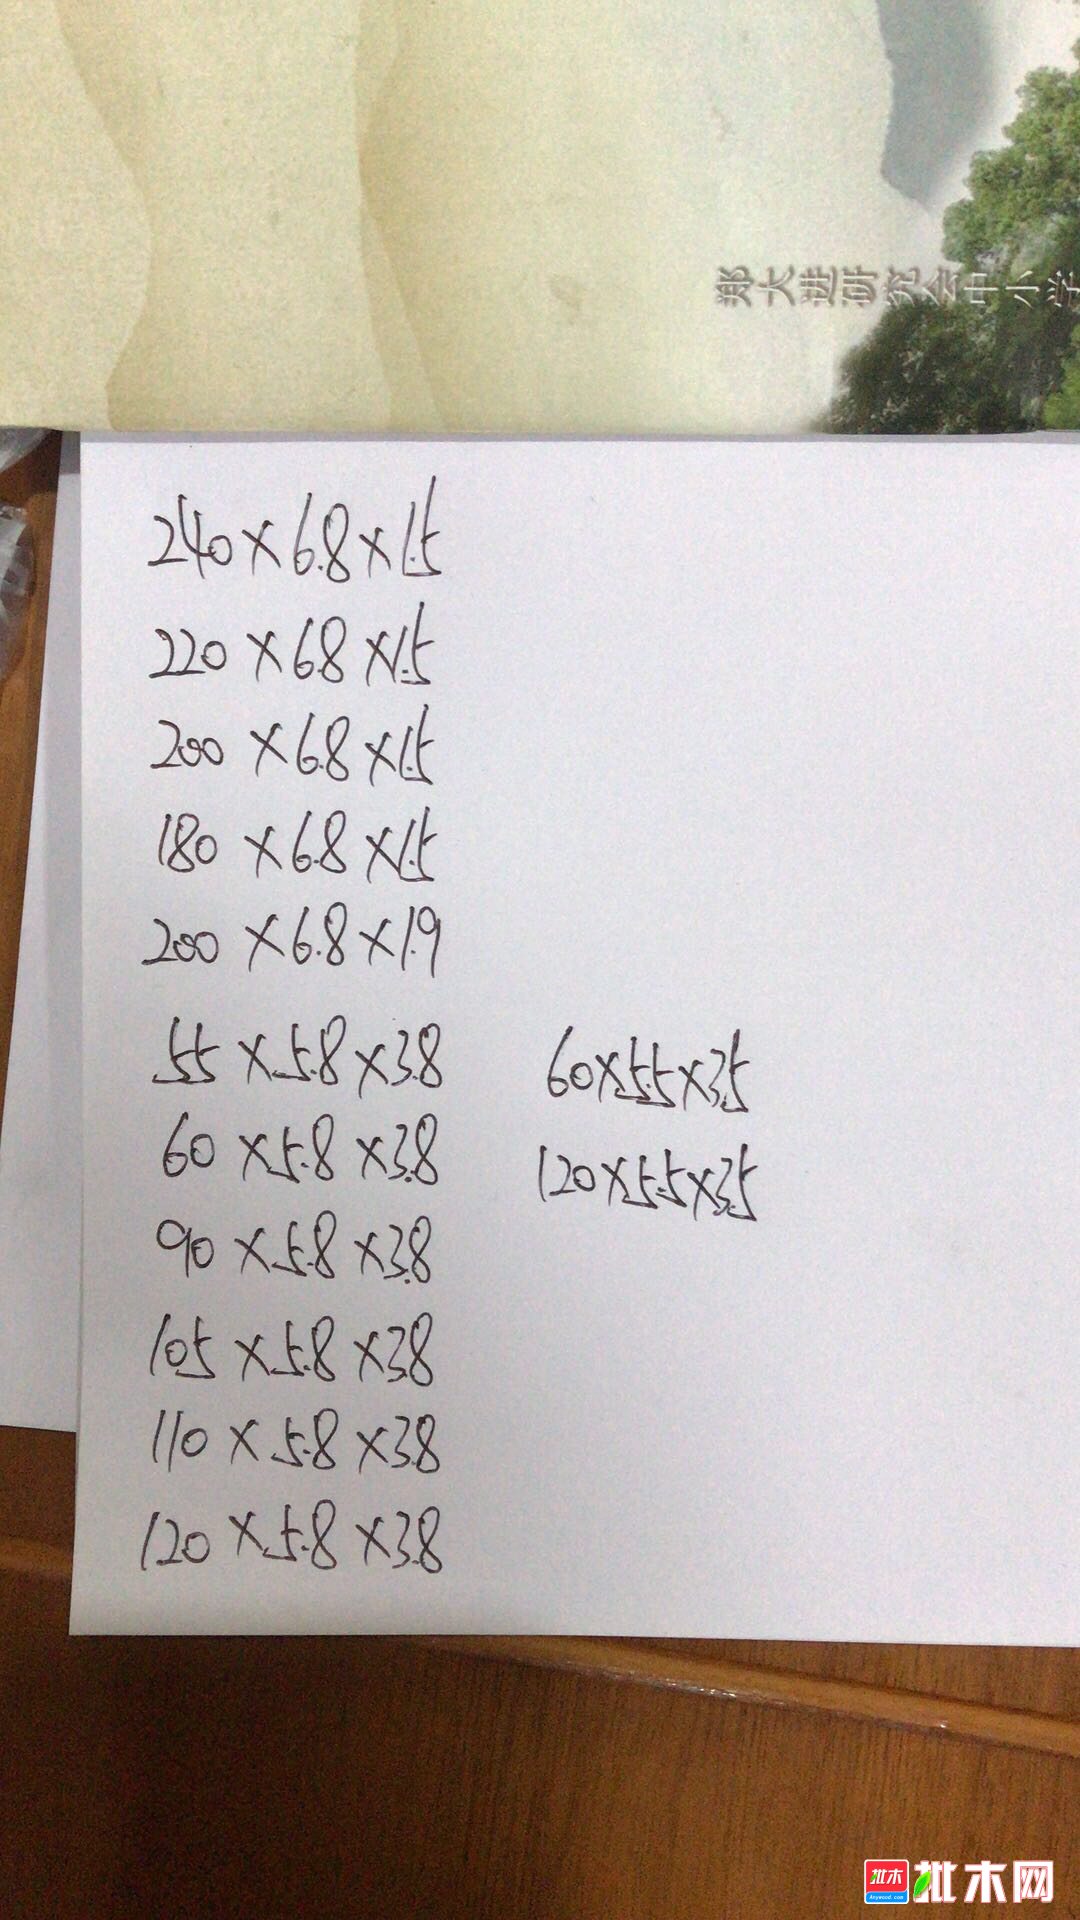 郑大进研究会中小学
240×6.8×1.5
220×6.8×1.5
200×6.8×1.5
180×6.8×1.5
200×6.8×1.9
55×5.8×3.8
60×5.8×3.8
90×5.8×3.8
105×5.8×3.8
110×5.8×3.8
120×5.8×3.8
60×5.5×3.5
120×5.5×3.5
批木
Anywood.com
批木网